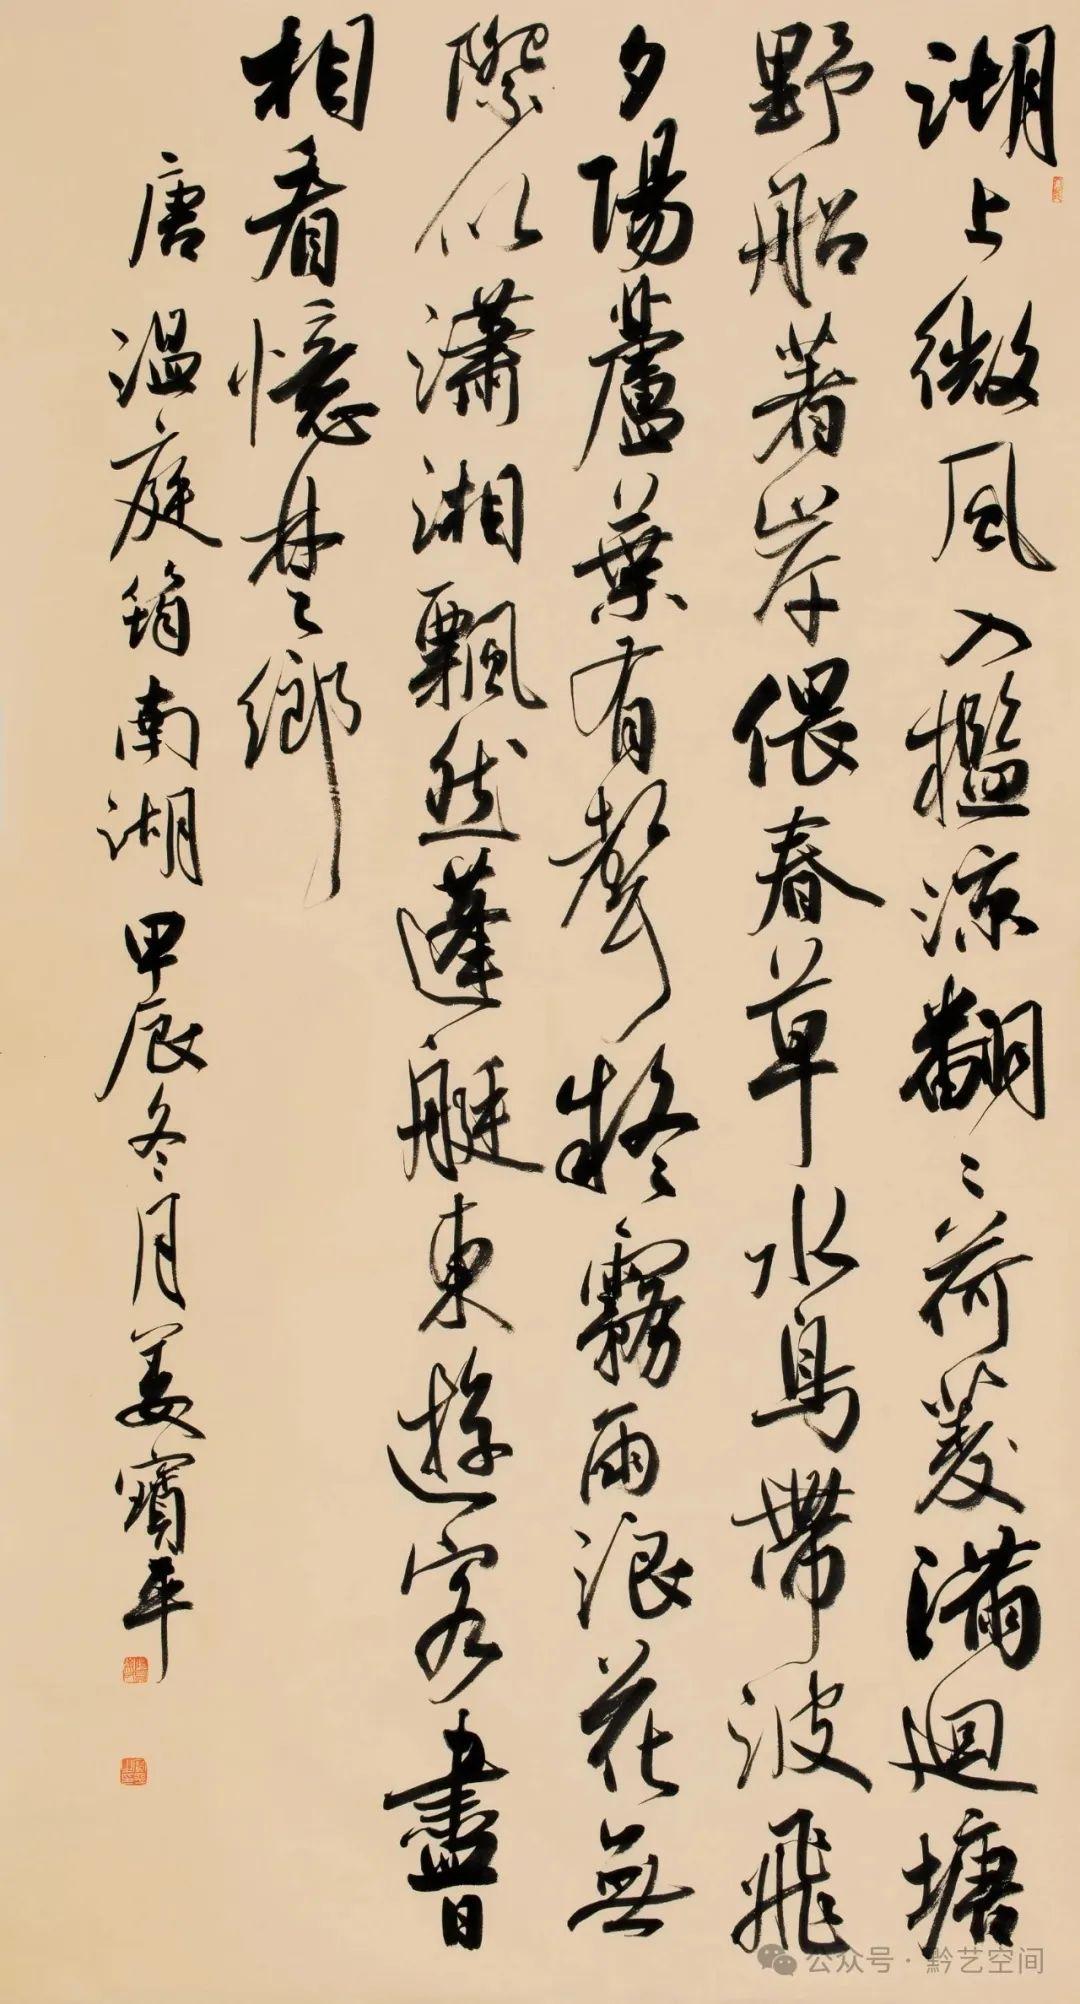 湖上微風入檻涼翻〻荷菱滿迴塘
野船著岸偎春草水鳥帶波飛
夕陽蘆葉有聲疑霧雨浪花無
際似瀟湘飄然蓬艇東遊客盡日
相看憶楚鄉
唐溫庭筠南湖甲辰冬月姜寶平
公众号 · 黔艺空间